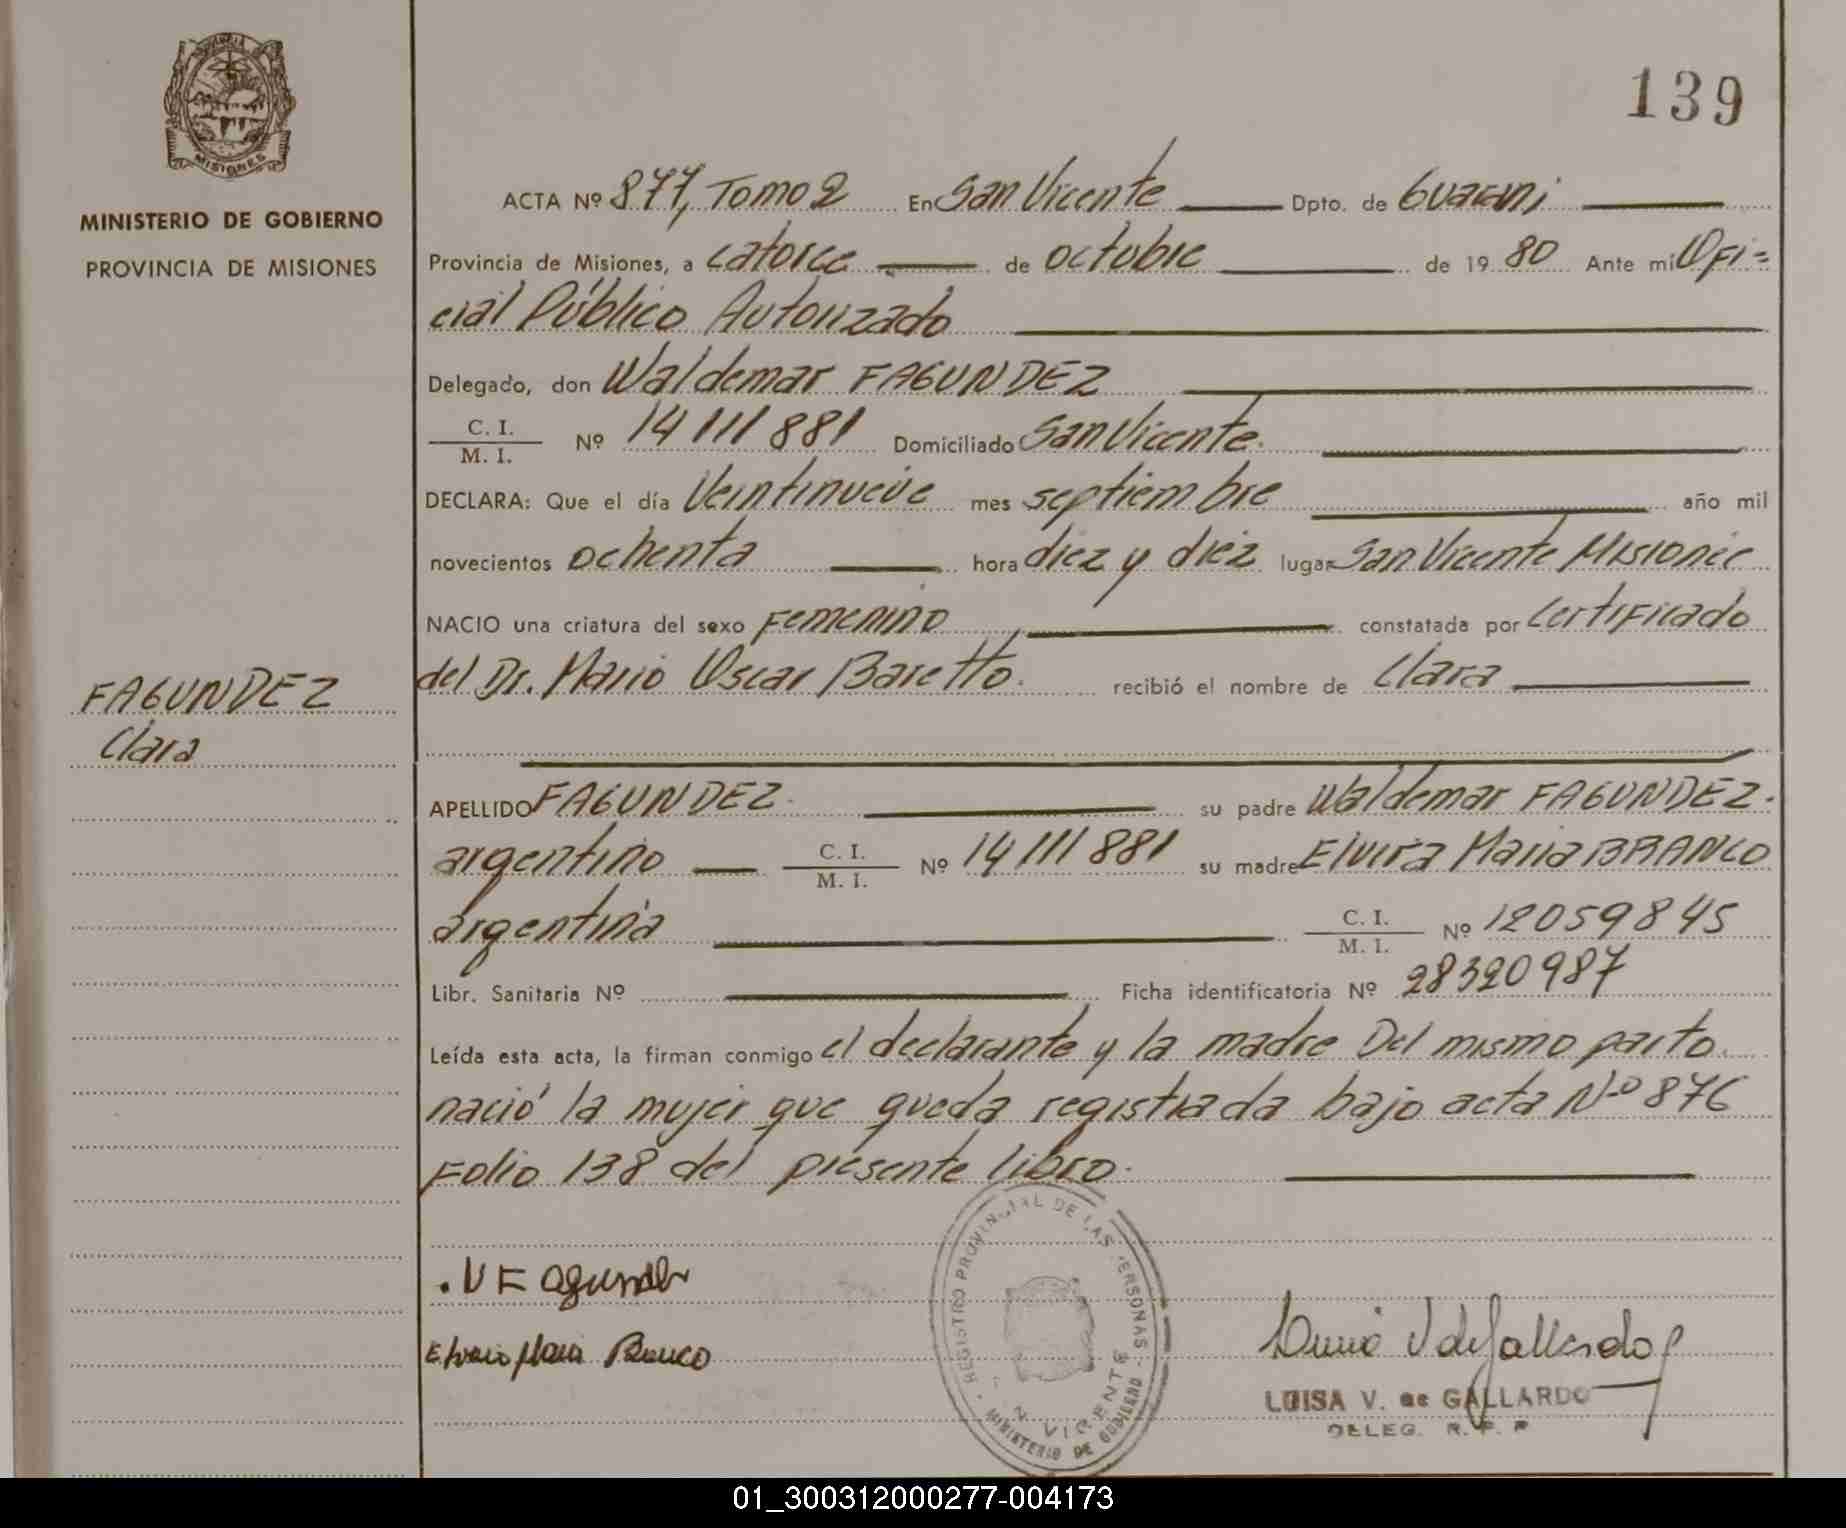 PROVINCIA DE
MISIONES
MINISTERIO DE GOBIERNO
PROVINCIA DE MISIONES
139
ACTA Nº 877, Tomo 2 En San Vicente Dpto. de Guarani
Provincia de Misiones, a catorce de octubre de 19 80 Ante mí Ofi=
cial Público Autorizado
Delegado, don Waldemar FAGUNDEZ
C. I. / M. I. Nº 14111881 Domiciliado San Vicente.
DECLARA: Que el día Veintinueve mes septiembre año mil
novecientos ochenta hora diez y diez lugar San Vicente Misiones
NACIO una criatura del sexo Femenino constatada por Certificado
del Dr. Mario Oscar Baretto. recibió el nombre de Clara
FAGUNDEZ
Clara
APELLIDO FAGUNDEZ. su padre Waldemar FAGUNDEZ.
argentino C. I. / M. I. Nº 14111881 su madre Elvira Maria BRANCO
argentina C. I. / M. I. Nº 12059845
Libr. Sanitaria Nº Ficha identificatoria Nº 28320987
Leída esta acta, la firman conmigo el declarante y la madre Del mismo parto
nació la mujer que queda registrada bajo acta Nº 876
Folio 138 del presente libro.
REGISTRO PROVINCIAL DE LAS PERSONAS
MINISTERIO DE GOBIERNO
VICENTE
Elvira Maria Branco
LUISA V. de GALLARDO
DELEG. R. P. P
01_300312000277-004173